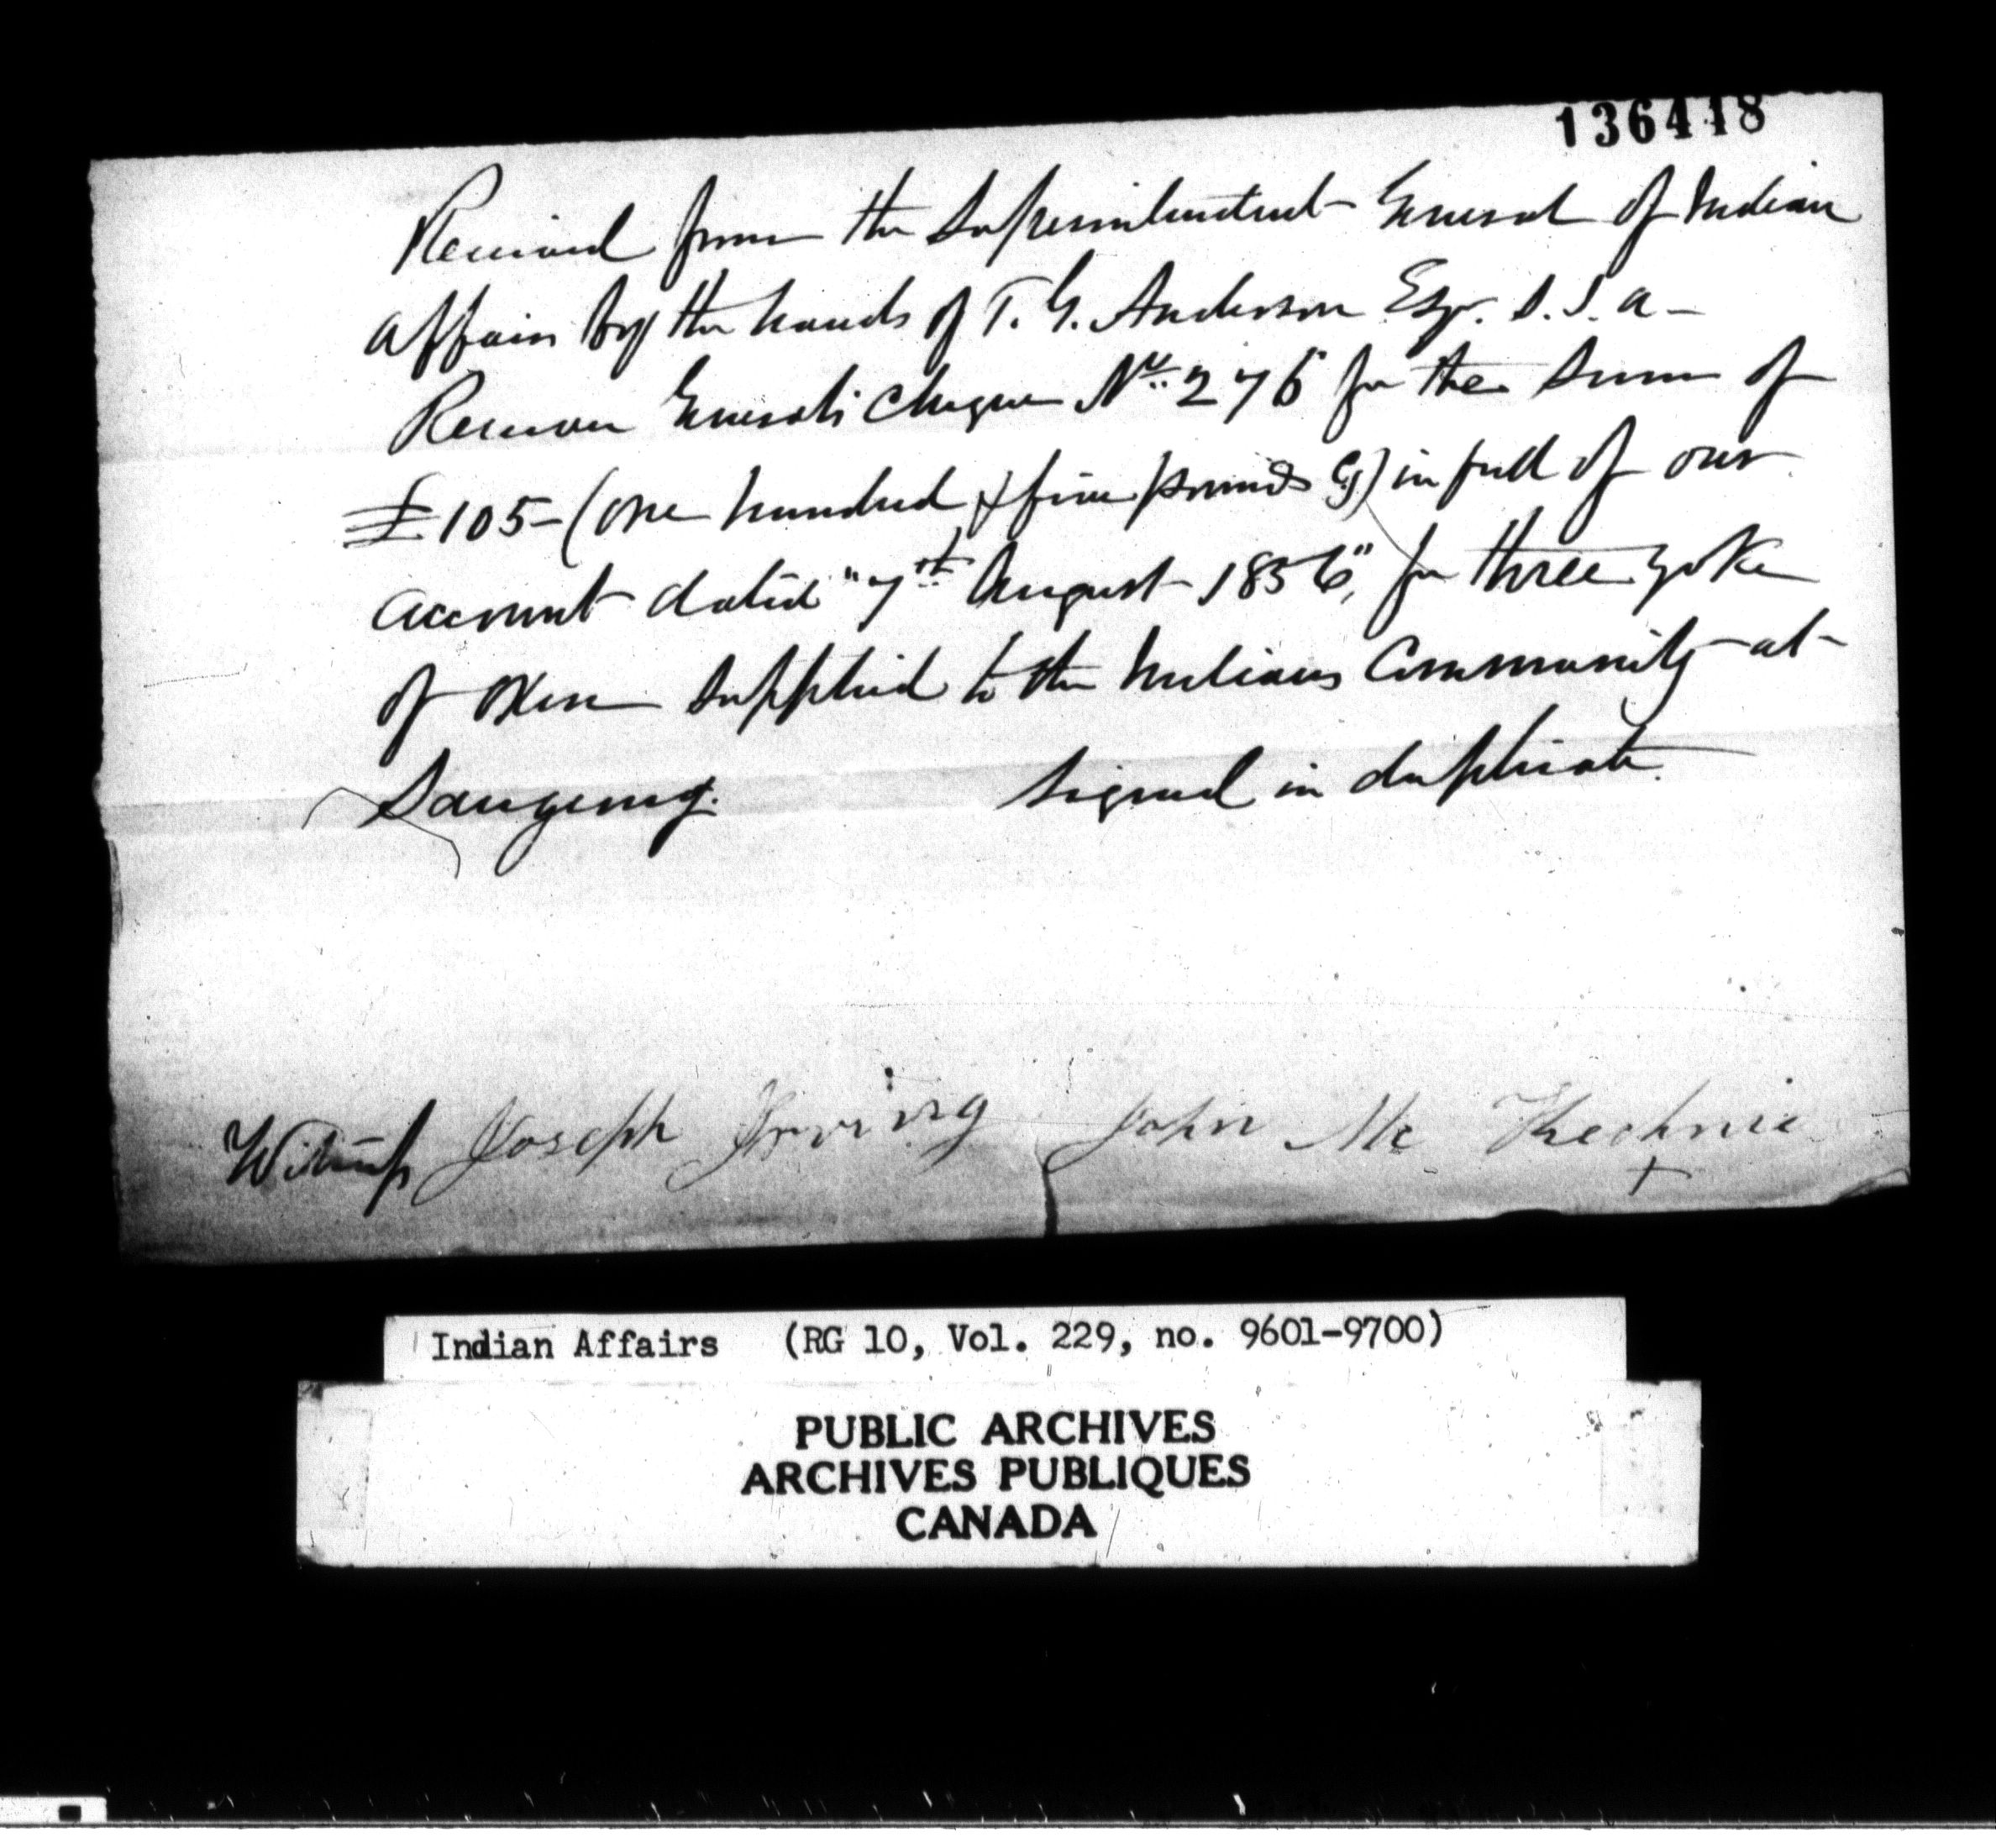 136418
Received from the Superintendent General of Indian
Affairs by the hands of T. G. Anderson Esqr. S. I. A -
Receiver Generals Cheque No. 276 for the sum of
£105 - (one hundred & five pounds Cy) in full of our
account dated "7th August 1856", for three yoke
of oxen supplied to the Indians Community at
Saugeeng. Signed in duplicate.
Witness Joseph Irving John Mc Kechnie
x
Indian Affairs (RG 10, Vol. 229, no. 9601-9700)
PUBLIC ARCHIVES
ARCHIVES PUBLIQUES
CANADA